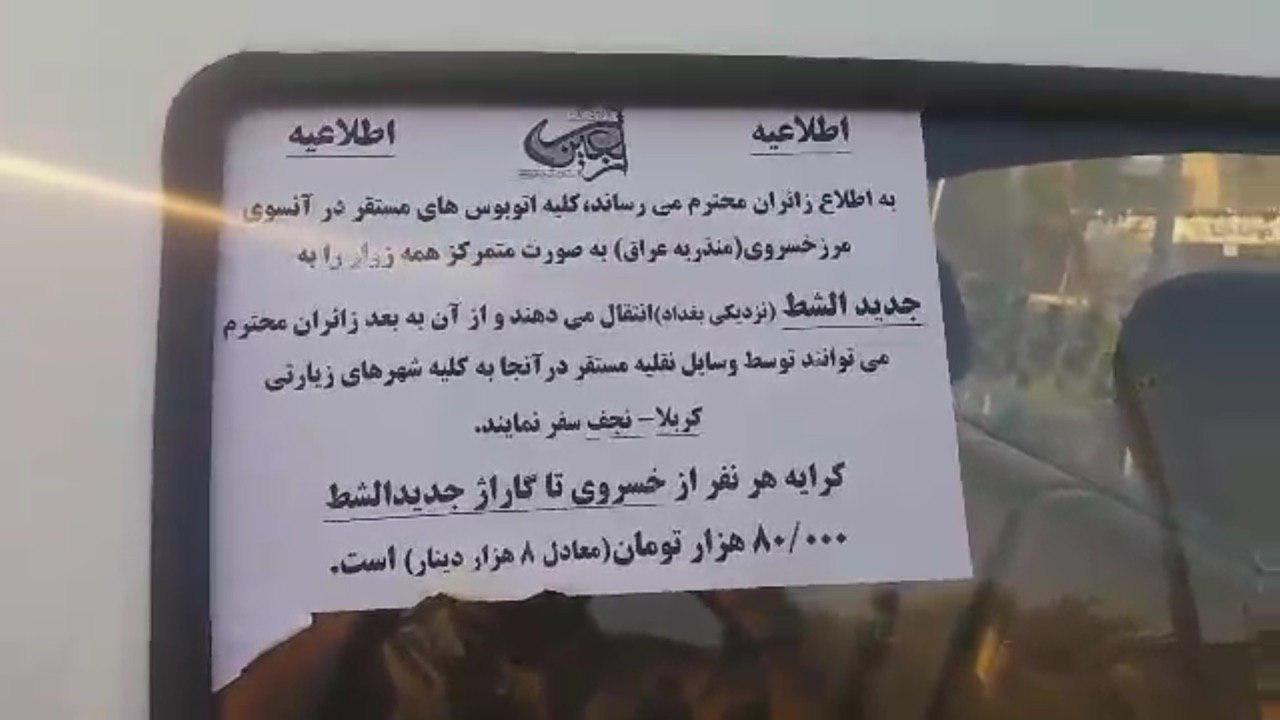 اطلاعیه اربعین اطلاعیه
به اطلاع زائران محترم می رساند،کلیه اتوبوس های مستقر در آنسوی
مرزخسروی(منذریه عراق) به صورت متمرکز همه زوار را به
جدید الشط (نزدیکی بغداد)انتقال می دهند و از آن به بعد زائران محترم
می توانند توسط وسایل نقلیه مستقر درآنجا به کلیه شهرهای زیارتی
کربلا- نجف سفر نمایند.
کرایه هر نفر از خسروی تا گاراژ جدیدالشط
۸۰/۰۰۰ هزار تومان(معادل ۸ هزار دینار) است.